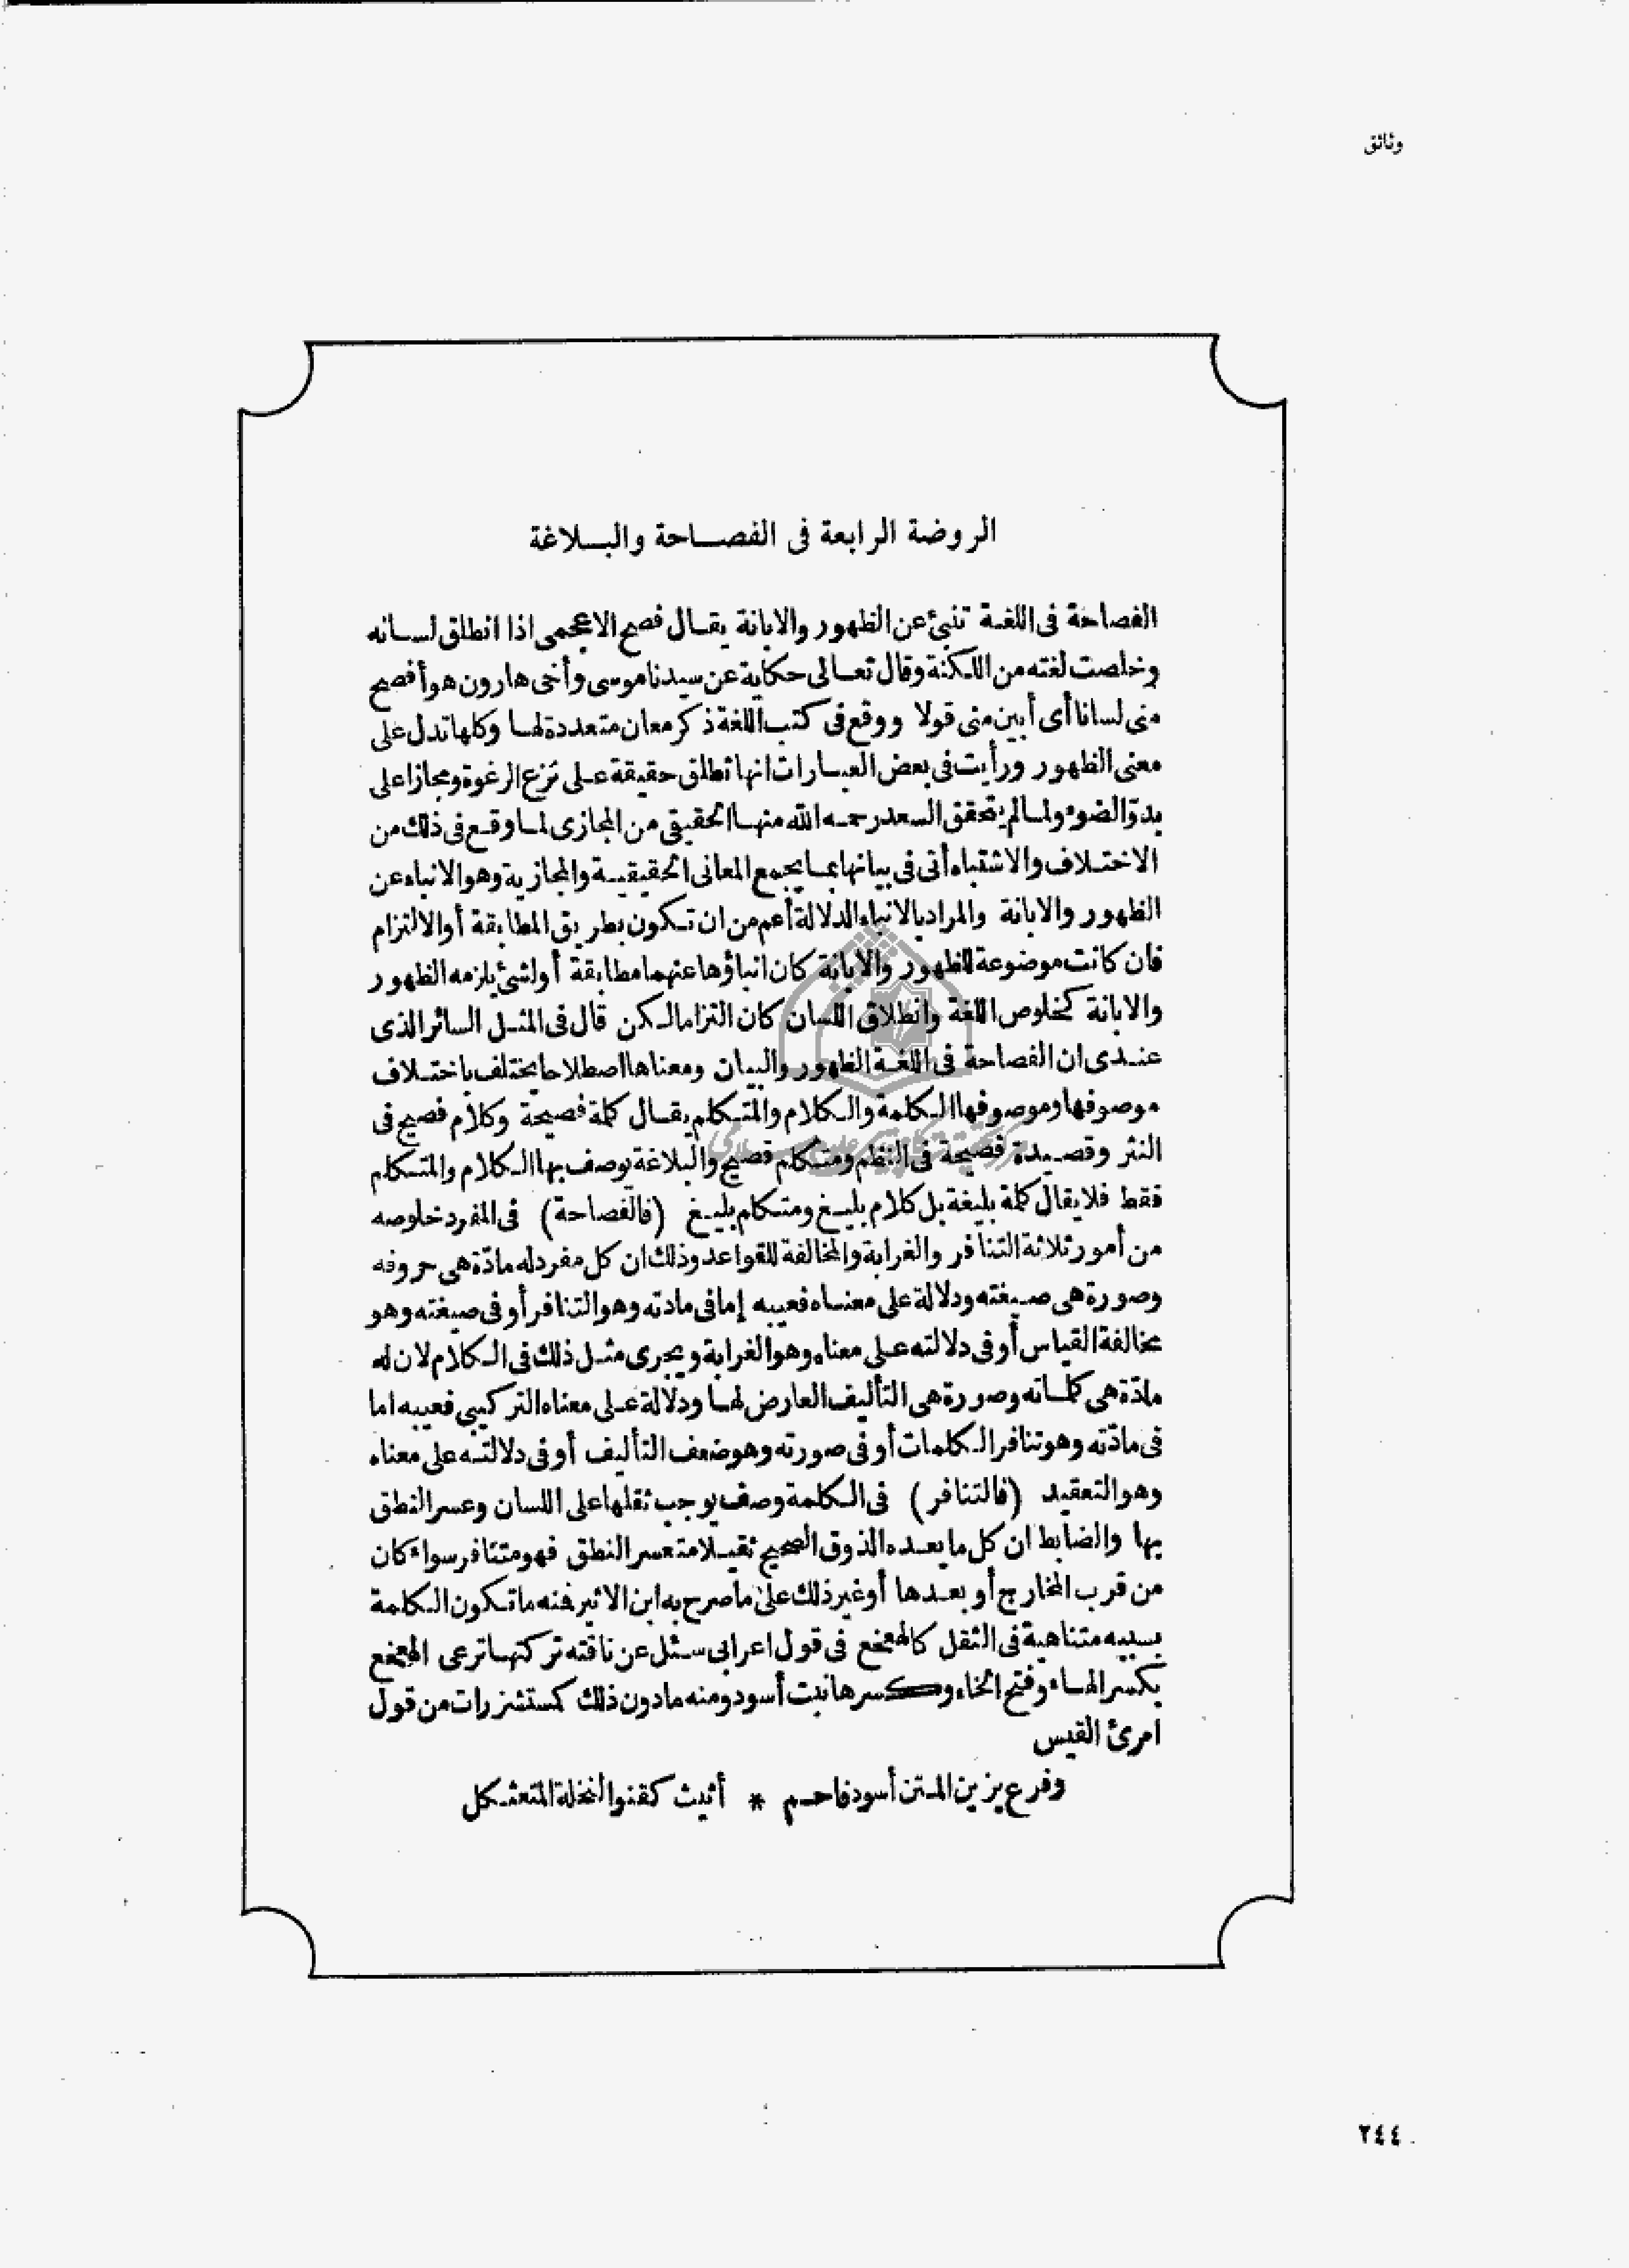 وثائق
الروضة الرابعة فى الفصاحة والبلاغة
الفصاحة فى اللغة تنبئ عن الظهور والابانة يقال فصح الاعجمى اذا انطلق لسانه
وخلصت لغته من اللكنة وقال تعالى حكاية عن سيدنا موسى وأخى هارون هو أفصح
منى لسانا أى أبين منى قولا ووقع فى كتب اللغة ذكر معان متعددة لها وكلها تدل على
معنى الظهور ورأيت فى بعض العبارات انها تطلق حقيقة على نزع الرغوة ومجازا على
بدوّ الضوء ولما لم يتحقق السعد رحمه الله منها الحقيقى من المجازى لما وقع فى ذلك من
الاختلاف والاشتباه أتى فى بيانها بما يجمع المعانى الحقيقية والمجازية وهو الانباء عن
الظهور والابانة والمراد بالانباء الدلالة أعم من ان تكون بطريق المطابقة أو الالتزام
فان كانت موضوعة للظهور والابانة كان انباؤها عنهما مطابقة أو لشئ يلزمه الظهور
والابانة كخلوص اللغة وانطلاق اللسان كان التزاما لكن قال فى المثل السائر الذى
عندى ان الفصاحة فى اللغة الظهور والبيان ومعناها اصطلاحا يختلف باختلاف
موصوفها وموصوفها الكلمة والكلام والمتكلم يقال كلمة فصيحة وكلام فصيح فى
النثر وقصيدة فصيحة فى النظم ومتكلم فصيح والبلاغة يوصف بها الكلام والمتكلم
فقط فلا يقال كلمة بليغة بل كلام بليغ ومتكلم بليغ (فالفصاحة) فى المفرد خلوصه
من أمور ثلاثة التنافر والغرابة والمخالفة للقواعد وذلك ان كل مفرد له مادّة هى حروفه
وصورة هى صيغته ودلالة على معناه فعيبه إما فى مادته وهو التنافر أو فى صيغته وهو
مخالفة القياس أو فى دلالته على معناه وهو الغرابة ويجرى مثل ذلك فى الكلام لان له
مادّة هى كلماته وصورة هى التأليف العارض لها ودلالة على معناه التركيبى فعيبه اما
فى مادّته وهو تنافر الكلمات أو فى صورته وهو ضعف التأليف أو فى دلالته على معناه
وهو التعقيد (فالتنافر) فى الكلمة وصف يوجب ثقلها على اللسان وعسر النطق
بها والضابط ان كل ما يعده الذوق الصحيح ثقيلا متعسر النطق فهو متنافر سواء كان
من قرب المخارج أو بعدها أو غير ذلك على ما صرح به ابن الاثير فمنه ما تكون الكلمة
بسببه متناهية فى الثقل كالهعخع فى قول اعرابى سئل عن ناقته تركتها ترعى الهعخع
بكسر الهاء وفتح الخاء وكسرها نبت أسود ومنه ما دون ذلك كمستشزرات من قول
امرئ القيس
وفرع يزين المتن أسود فاحم * أثيث كقنوا النخلة المتعثكل
٢٤٤